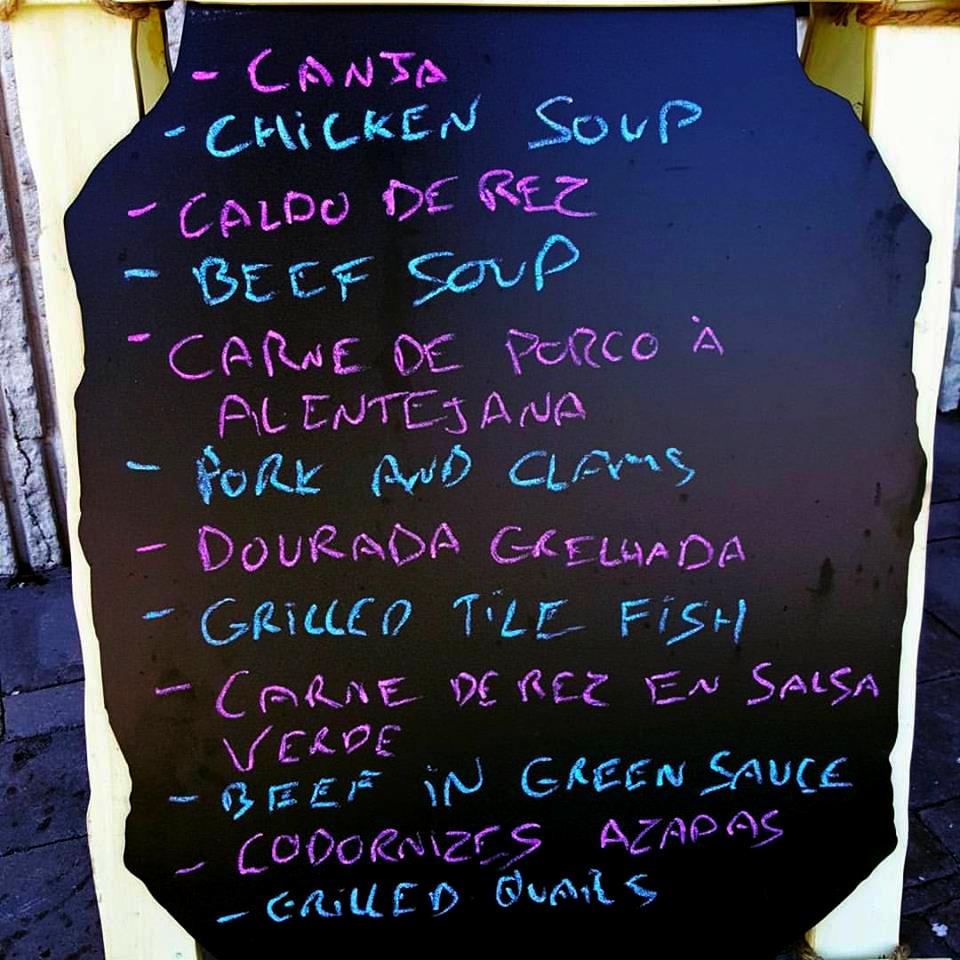 - CANJA
- CHICKEN SOUP
- CALDO DE REZ
- BEEF SOUP
- CARNE DE PORCO À
ALENTEJANA
- PORK AND CLAMS
- DOURADA GRELHADA
- GRILLED TILE FISH
- CARNE DE REZ EN SALSA
VERDE
- BEEF IN GREEN SAUCE
- CODORNIZES AZADAS
- GRILLED QUAILS